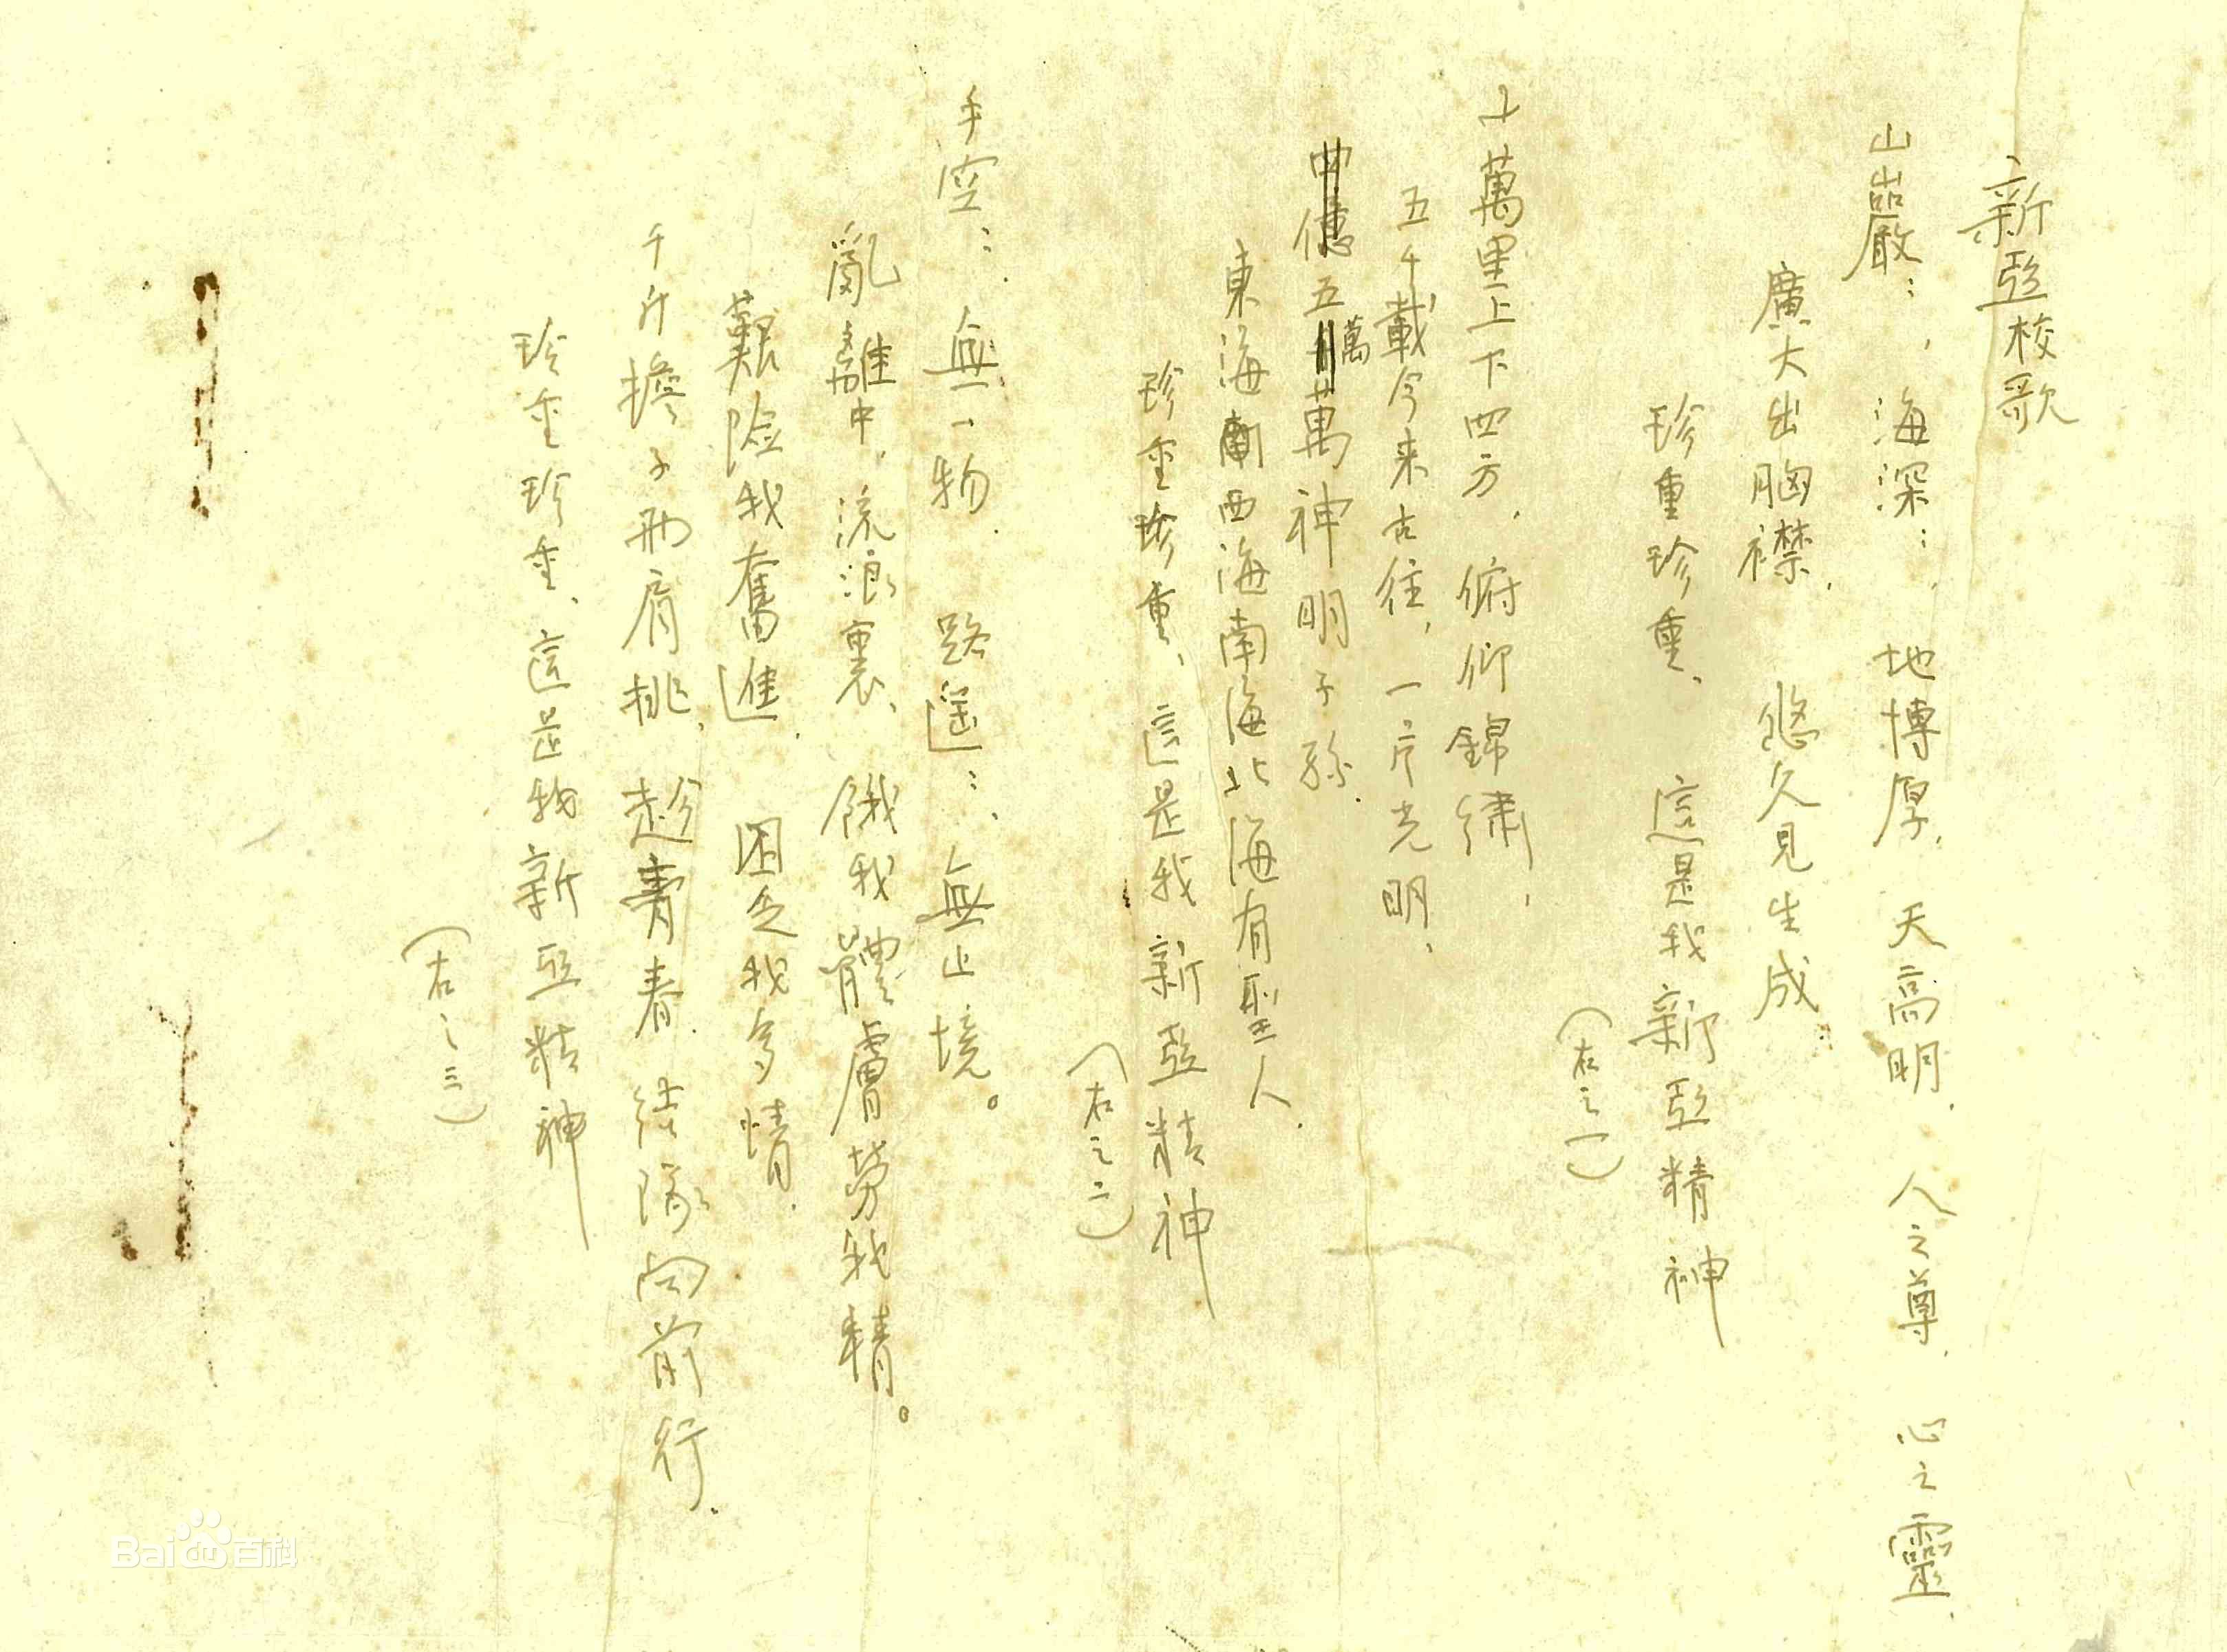 新亞校歌
山巖〻，海深〻，地博厚，天高明，人之尊，心之靈，
廣大出胸襟，悠久見生成。
珍重珍重、這是我新亞精神
（右之一）
十萬里上下四方，俯仰錦繡，
五千載今来古往，一片光明、
五萬萬神明子孫.
東海西海南海北海有聖人.
珍重珍重、這是我新亞精神
（右之二）
手空〻，無一物，路遥〻，無止境。
亂離中，流浪裏、餓我體膚勞我精。
艱險我奮進，困乏我多情.
千斤擔子兩肩挑、趁青春，結隊向前行.
珍重珍重、這是我新亞精神
（右之三）
Bai百科